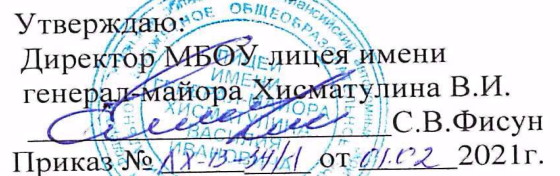 Утверждаю:
Директор МБОУ лицея имени
генерал-майора Хисматулина В.И.
С.В.Фисун
Приказ № от 01.02 2021г.